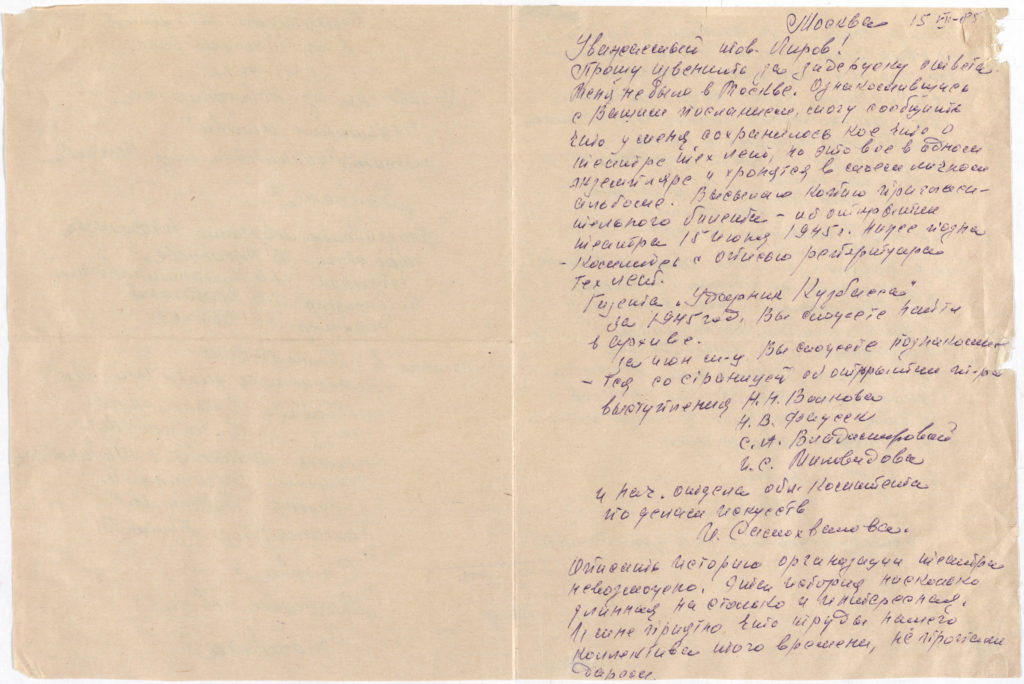 Москва 15 VII-85
Уважаемый тов. Лиров!
Прошу извенить за задержку ответа
Меня не было в Москве. Ознакомившись
с Вашим посланием, смогу сообщить
что у меня сохранилось кое что о
театре тех лет, но это все в одном
экземпляре и хронятся в моем личном
альбоме. Высылаю копию пригласи-
тельного билета - об открытии
театра 15 июня 1945 г. Ниже позна
- комитесь с описью репертуара
тех лет.
Газета "Ударник Кузбасса"
за 1945 год. Вы сможете найти
в архиве.
За июн м-ц Вы сможете познакомит
- тся со страницей об открытии т-ра
выступления Н.Н. Волкова
Н.В.
С.А. Владимировой
И.С. Миловидова
и нач. отдела обл. комитета
по делам искусств
И. Самохвалова.
Описать историю организации театра
невозможно. Эта история насколько
длинная на столько и интересная.
И мне приятно что труды нашего
коллектива того времени, не пропали
даром.